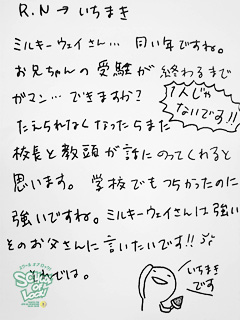 R.N→いちまき
ミルキーウェイさん… 同い年ですね。
お兄ちゃんの受験が終わるまで
ガマン… できますか?
1人じゃ
ないです!!
たえられなくなったらまた
校長と教頭が話にのってくれると
思います。 学校でもつらかったのに
強いですね。ミルキーウェイさんは強い
そのお父さんに言いたいです!!
それでは。
いちまき
です
SCHOOL OF LOCK!